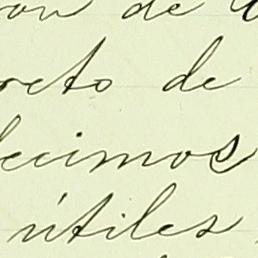 on de
reto de
decimos
útiles